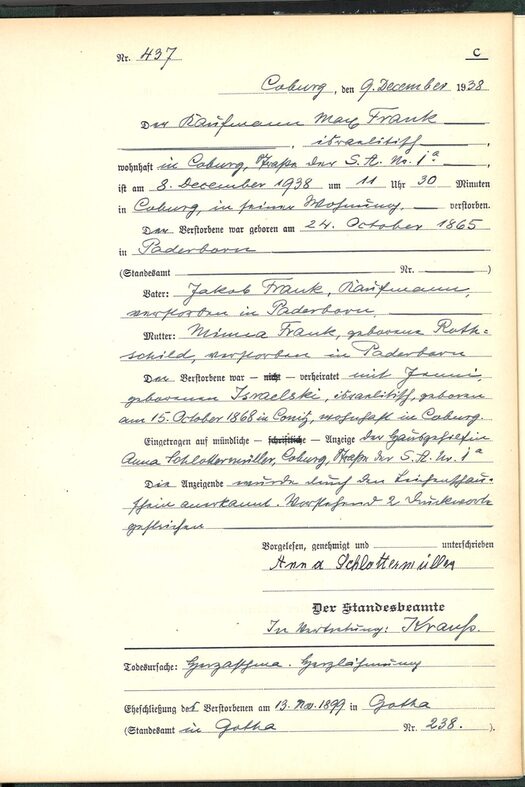 Nr. 437 C
Coburg, den 9. December 1938
Der Kaufmann Max Frank
, israelitisch,
wohnhaft in Coburg, Straße der S. A. Nr. 1a,
ist am 8. December 1938 um 11 Uhr 30 Minuten
in Coburg, in seiner Wohnung, verstorben.
Der Verstorbene war geboren am 24. October 1865
in Paderborn
(Standesamt Nr. )
Vater: Jakob Frank, Kaufmann,
verstorben in Paderborn,
Mutter: Minna Frank, geborene Roth=
schild, verstorben in Paderborn
Der Verstorbene war – nicht – verheiratet mit Jenni,
geborenen Israelski, israelitisch, geboren
am 15. October 1868 in Conitz, wohnhaft in Coburg
Eingetragen auf mündliche – schriftliche – Anzeige der Hausgehilfin
Anna Schlottermüller, Coburg, Straße der S. A. Nr. 1a
Die Anzeigende wurde durch den Leichenschau-
schein anerkannt. Vorstehend 2 Druckworte
gestrichen
Vorgelesen, genehmigt und unterschrieben
Anna Schlottermüller
Der Standesbeamte
In Vertretung: Krauß.
Todesursache: Herzasthma. Herzlähmung
Eheschließung des Verstorbenen am 13. Nov. 1899 in Gotha
(Standesamt in Gotha Nr. 238.).